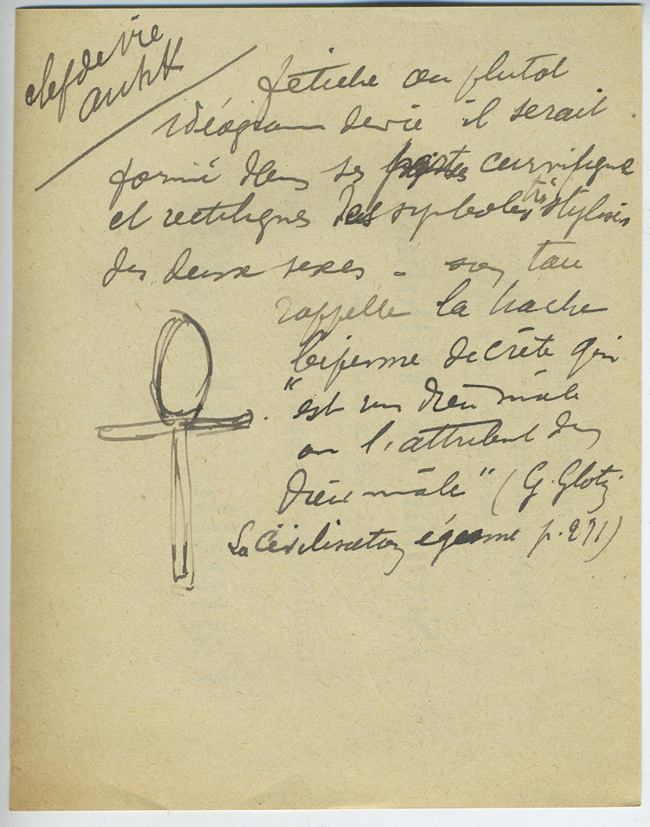 clef de vie
ankh
fétiche ou plutot
idéogram de vie il serait
formé dans ses parties curvifigne
et rectilignes des symboles très stylisés
des deux sexes - son tau
rappelle la hache
biforme de crète qui
"est un dieu mâle
ou l'attribut du
dieu mâle" (G. Glotz
La Civilisation égéenne p. 271)